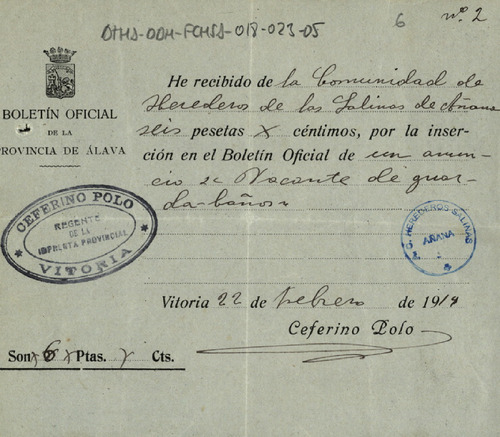 DTHA-DDM-FCHSS-018-023-05
6 nº 2
BOLETÍN OFICIAL
DE LA
PROVINCIA DE ÁLAVA
He recibido de la Comunidad de
Herederos de las Salinas de Añana
seis pesetas x céntimos, por la inser-
ción en el Boletín Oficial de un anun-
cio Vacante de guar-
da-baños
CEFERINO POLO
REGENTE
DE LA
IMPRENTA PROVINCIAL
VITORIA
C. HEREDEROS SALINAS
AÑANA
Vitoria 22 de Febrero de 191
Ceferino Polo
Son x 6 x Ptas. x Cts.